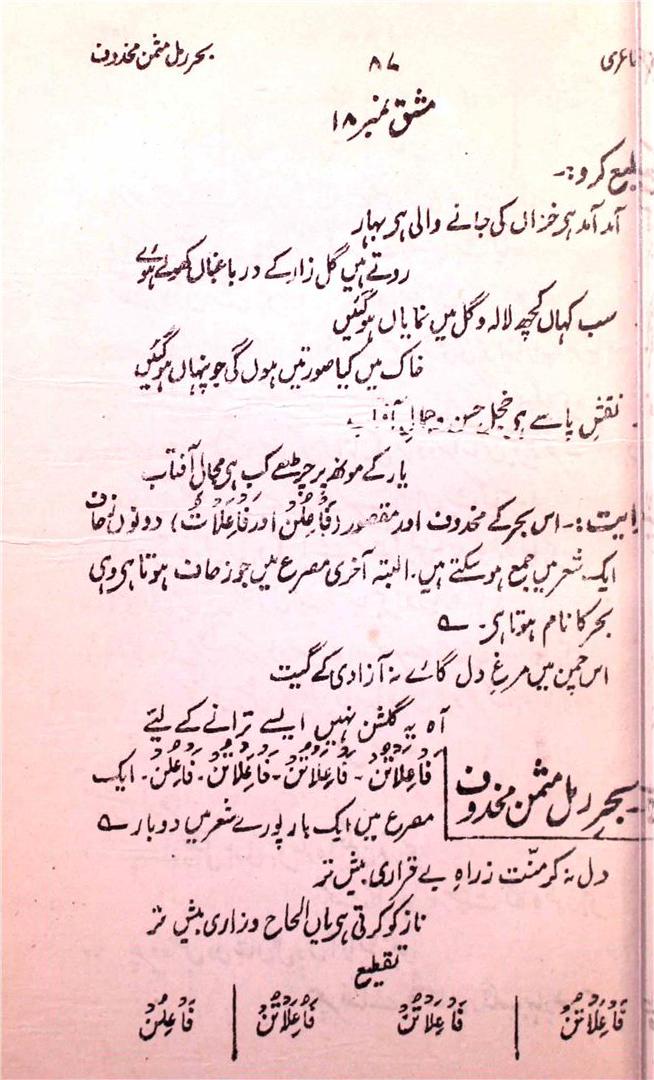 عری ۸۷ بحر رمل مثمن محذوف
مشق نمبر ۱۸
طیع کرو:-
آمد آمد ہی خزاں کی جانے والی ہی بہار
روتے ہیں گل زار کے در باغباں کھولے ہوئے
سب کہاں کچھ لالہ و گل میں نمایاں ہو گئیں
خاک میں کیا صورتیں ہوں گی جو پنہاں ہو گئیں
نقش پا سے ہی خجل حسن و جمال آفتاب
یار کے مونھ پر چڑھے کب ہی مجال آفتاب
ایت:- اس بحر کے محذوف اور مقصور (فَاعِلُنْ اور فَاعِلَاتْ) دونوں زحاف
ایک شعر میں جمع ہو سکتے ہیں. البتہ آخری مصرع میں جو زحاف ہوتا ہی وہی
بحر کا نام ہوتا ہی. ے
اس چمن میں مرغِ دل گائے نہ آزادی کے گیت
آہ یہ گلشن نہیں ایسے ترانے کے لیئے
بحر رمل مثمن محذوف
فَاعِلَاتُنْ - فَاعِلَاتُنْ - فَاعِلَاتُنْ - فَاعِلُنْ - ایک
مصرع میں ایک بار پورے شعر میں دو بار ے
دل نہ کر منّت زراہِ بے قراری بیش تر
ناز کو کرتی ہی یاں الحاح و زاری بیش تر
تقطیع
فَاعِلَاتُنْ | فَاعِلَاتُنْ فَاعِلَاتُنْ | فَاعِلُنْ